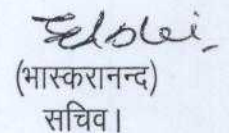 (भास्करानन्द)
सचिव।